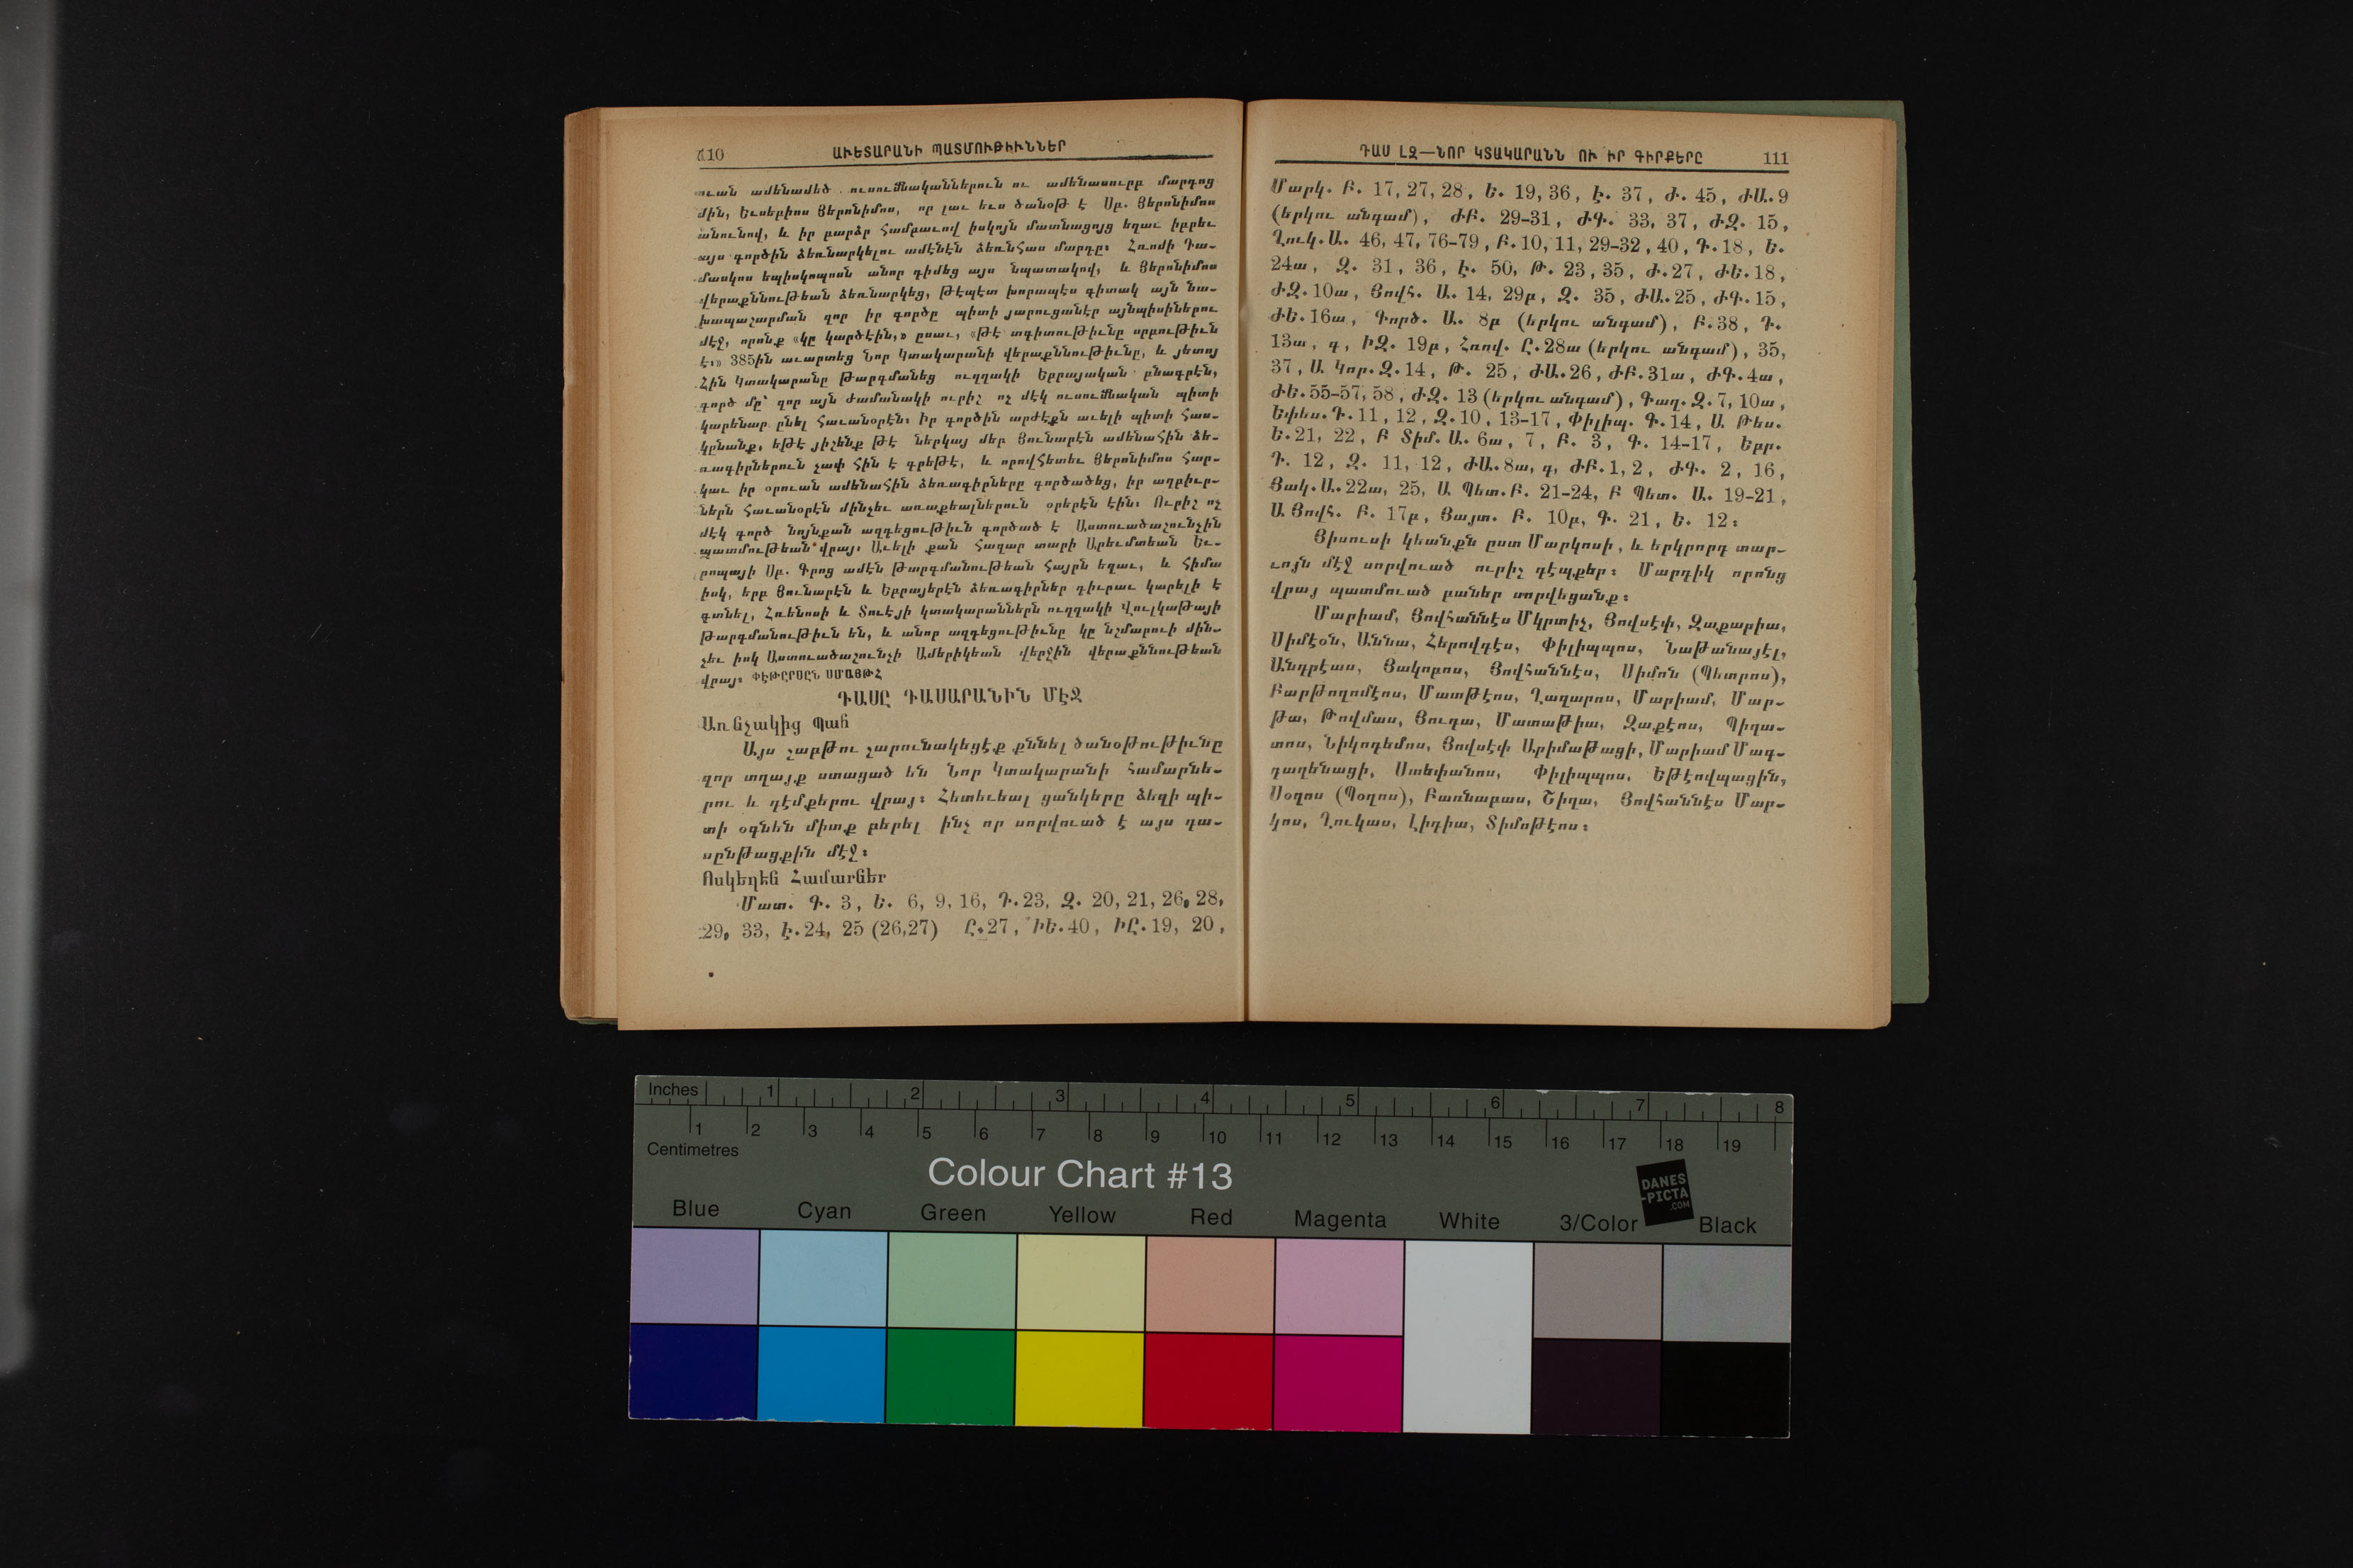 110 ԱՒԵՏԱՐԱՆԻ ՊԱՏՄՈՒԹԻՒՆՆԵՐ
ուան ամենամեծ ուսումնականներուն ու ամենասուրբ մարդոց
մին, Եւսեբիոս Յերոնիմոս, որ լաւ եւս ծանօթ է Սբ. Յերոնիմոս
անունով, և իր բարձր համբաւով իսկոյն մատնացոյց եղաւ իբրեւ
այս գործին ձեռնարկելու ամէնէն ձեռնհաս մարդը։ Հռոմի Դա-
մասկոս եպիսկոպոսն անոր դիմեց այս նպատակով, և Յերոնիմոս
վերաքննութեան ձեռնարկեց, թէպէտ խորապէս գիտակ այն նա-
խապաշարման զոր իր գործը պիտի յարուցանէր այնպիսիներու
մէջ, որոնք «կը կարծէին,» ըսաւ, «թէ տգիտութիւնը սրբութիւն
է։» 385ին աւարտեց Նոր Կտակարանի վերաքննութիւնը, և յետոյ
Հին Կտակարանը թարգմանեց ուղղակի Եբրայական բնագրէն,
գործ մը՝ զոր այն ժամանակի ուրիշ ոչ մէկ ուսումնական պիտի
կարենար ընել հաւանօրէն։ Իր գործին արժէքն աւելի պիտի հաս-
կընանք, եթէ յիշենք թէ ներկայ մեր Յունարէն ամենահին ձե-
ռագիրներուն չափ հին է գրեթէ, և որովհետեւ Յերոնիմոս հար-
կաւ իր օրուան ամենահին ձեռագիրները գործածեց, իր աղբիւր-
ներն հաւանօրէն մինչեւ առաքեալներուն օրերէն էին։ Ուրիշ ոչ
մէկ գործ նոյնքան ազդեցութիւն գործած է Աստուածաշունչին
պատմութեան վրայ։ Աւելի քան հազար տարի Արեւմտեան Եւ-
րոպայի Սբ. Գրոց ամէն թարգմանութեան հայրն եղաւ, և հիմա
իսկ, երբ Յունարէն և Եբրայերէն ձեռագիրներ դիւրաւ կարելի է
գտնել, Հռենոսի և Տուէյի կտակարաններն ուղղակի Վուլկաթայի
թարգմանութիւն են, և անոր ազդեցութիւնը կը նշմարուի մին-
չեւ իսկ Աստուածաշունչի Ամերիկեան վերջին վերաքննութեան
վրայ։ ՓԷԹԸՐՍԸՆ ՍՄԱՅԹՀ
ԴԱՍԸ ԴԱՍԱՐԱՆԻՆ ՄԷՋ
Առնչակից Պահ
Այս շաբթու շարունակեցէք քննել ծանօթութիւնը
զոր տղայք ստացած են Նոր Կտակարանի համարնե-
րու և դէմքերու վրայ։ Հետեւեալ ցանկերը ձեզի պի-
տի օգնեն միտք բերել ինչ որ սորվուած է այս դա-
սընթացքին մէջ։
Ոսկեղէն Համարներ
Մատ. Գ. 3, Ե. 6, 9, 16, Դ. 23, Զ. 20, 21, 26, 28,
29, 33, Է. 24, 25 (26,27) Ը. 27, ԻԵ. 40, ԻԸ. 19, 20,
ԴԱՍ ԼԶ—ՆՈՐ ԿՏԱԿԱՐԱՆՆ ՈՒ ԻՐ ԳԻՐՔԵՐԸ 111
Մարկ. Բ. 17, 27, 28, Ե. 19, 36, Է. 37, Ժ. 45, ԺԱ. 9
(երկու անգամ), ԺԲ. 29-31, ԺԳ. 33, 37, ԺԶ. 15,
Ղուկ. Ա. 46, 47, 76-79, Բ. 10, 11, 29-32, 40, Դ. 18, Ե.
24ա, Զ. 31, 36, Է. 50, Թ. 23, 35, Ժ. 27, ԺԵ. 18,
ԺԶ. 10ա, Յովհ. Ա. 14, 29բ, Զ. 35, ԺԱ. 25, ԺԳ. 15,
ԺԵ. 16ա, Գործ. Ա. 8բ (երկու անգամ), Բ. 38, Դ.
13ա, գ, ԻԶ. 19բ, Հռով. Ը. 28ա (երկու անգամ), 35,
37, Ա. Կոր. Զ. 14, Թ. 25, ԺԱ. 26, ԺԲ. 31ա, ԺԳ. 4ա,
ԺԵ. 55-57, 58, ԺԶ. 13 (երկու անգամ), Գաղ. Զ. 7, 10ա,
Եփես. Դ. 11, 12, Զ. 10, 13-17, Փիլիպ. Գ. 14, Ա. Թես.
Ե. 21, 22, Բ Տիմ. Ա. 6ա, 7, Բ. 3, Գ. 14-17, Եբր.
Դ. 12, Զ. 11, 12, ԺԱ. 8ա, գ, ԺԲ. 1, 2, ԺԳ. 2, 16,
Յակ. Ա. 22ա, 25, Ա. Պետ. Բ. 21-24, Բ Պետ. Ա. 19-21,
Ա. Յովհ. Բ. 17բ, Յայտ. Բ. 10բ, Գ. 21, Ե. 12։
Յիսուսի կեանքն ըստ Մարկոսի, և երկրորդ տար-
ւոյն մէջ սորվուած ուրիշ դէպքեր։ Մարդիկ որոնց
վրայ պատմուած բաներ սորվեցանք։
Մարիամ, Յովհաննէս Մկրտիչ, Յովսէփ, Զաքարիա,
Սիմէօն, Աննա, Հերովդէս, Փիլիպպոս, Նաթանայէլ,
Անդրէաս, Յակոբոս, Յովհաննէս, Սիմոն (Պետրոս),
Բարթողոմէոս, Մատթէոս, Ղազարոս, Մարիամ, Մար-
թա, Թովմաս, Յուդա, Մատաթիա, Զաքէոս, Պիղա-
տոս, Նիկոդեմոս, Յովսէփ Արիմաթացի, Մարիամ Մագ-
դաղենացի, Ստեփանոս, Փիլիպպոս, Եթէովպացին,
Սօղոս (Պօղոս), Բառնաբաս, Շիղա, Յովհաննէս Մար-
կոս, Ղուկաս, Լիդիա, Տիմոթէոս։
Inches 1 2 3 4 5 6 7 8
1 2 3 4 5 6 7 8 9 10 11 12 13 14 15 16 17 18 19
Centimetres
Colour Chart #13
DANES
-PICTA
.COM
Blue Cyan Green Yellow Red Magenta White 3/Color Black